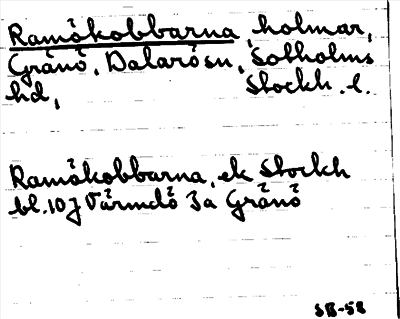 Ramökobbarna, holmar,
Gränö, Dalarö sn, Sotholms
hd, Stockh. l.
Ramökobbarna, ek Stockh
bl. 107 Värmdö 3a Gränö
SB-58